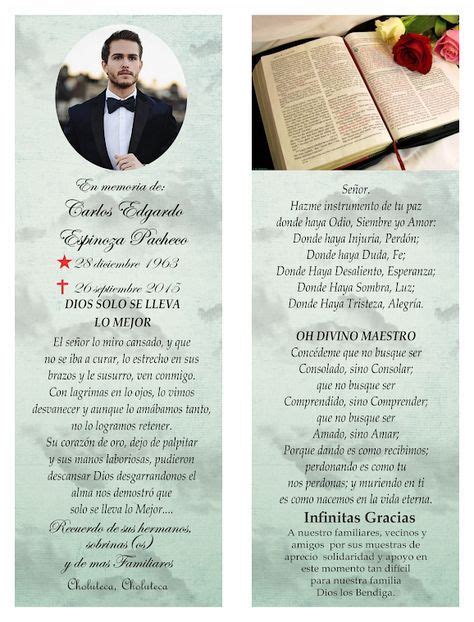 En memoria de:
Carlos Edgardo
Espinoza Pacheco
28 diciembre 1963
26 septiembre 2015
DIOS SOLO SE LLEVA
LO MEJOR
El señor lo miro cansado, y que
no se iba a curar, lo estrecho en sus
brazos y le susurro, ven conmigo.
Con lagrimas en lo ojos, lo vimos
desvanecer y aunque lo amábamos tanto,
no lo logramos retener.
Su corazón de oro, dejo de palpitar
y sus manos laboriosas, pudieron
descansar Dios desgarrandonos el
alma nos demostró que
solo se lleva lo Mejor....
Recuerdo de sus hermanos,
sobrinas (os)
y de mas Familiares
Choluteca, Choluteca
Señor.
Hazme instrumento de tu paz
donde haya Odio, Siembre yo Amor:
Donde haya Injuria, Perdón;
Donde haya Duda, Fe;
Donde Haya Desaliento, Esperanza;
Donde Haya Sombra, Luz;
Donde Haya Tristeza, Alegría.
OH DIVINO MAESTRO
Concédeme que no busque ser
Consolado, sino Consolar;
que no busque ser
Comprendido, sino Comprender;
que no busque ser
Amado, sino Amar;
Porque dando es como recibimos;
perdonando es como tu
nos perdonas; y muriendo en ti
es como nacemos en la vida eterna.
Infinitas Gracias
A nuestro familiares, vecinos y
amigos por sus muestras de
aprecio solidaridad y apoyo en
este momento tan difícil
para nuestra familia
Dios los Bendiga.